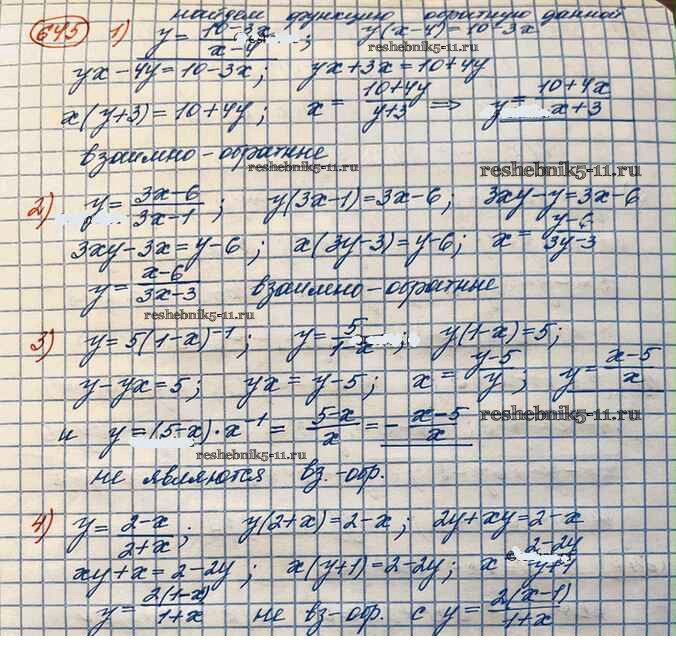 найдем функцию обратную данной
645 1) y = 10-3x / x-4 ; y(x-4)=10-3x
reshebnik5-11.ru
yx-4y=10-3x; yx+3x=10+4y
x(y+3)=10+4y; x = 10+4y / y+3 ⇒ y = 10+4x / x+3
взаимно-обратные
reshebnik5-11.ru reshebnik5-11.ru
2) y = 3x-6 / 3x-1 ; y(3x-1)=3x-6; 3xy-y=3x-6
3xy-3x=y-6; x(3y-3)=y-6; x = y-6 / 3y-3
y = x-6 / 3x-3 взаимно-обратные
reshebnik5-11.ru
3) y=5(1-x)⁻¹; y = 5 / 1-x ; y(1-x)=5;
y-yx=5; yx=y-5; x = y-5 / y ; y = x-5 / x
и y=(5-x)·x⁻¹ = 5-x / x = - x-5 / x
reshebnik5-11.ru
reshebnik5-11.ru
не являются вз.-обр.
4) y = 2-x / 2+x ; y(2+x)=2-x; 2y+xy=2-x
xy+x=2-2y; x(y+1)=2-2y; x 2-2y / y+1
y = 2(1-x) / 1+x не вз-обр. с y = 2(x-1) / 1+x